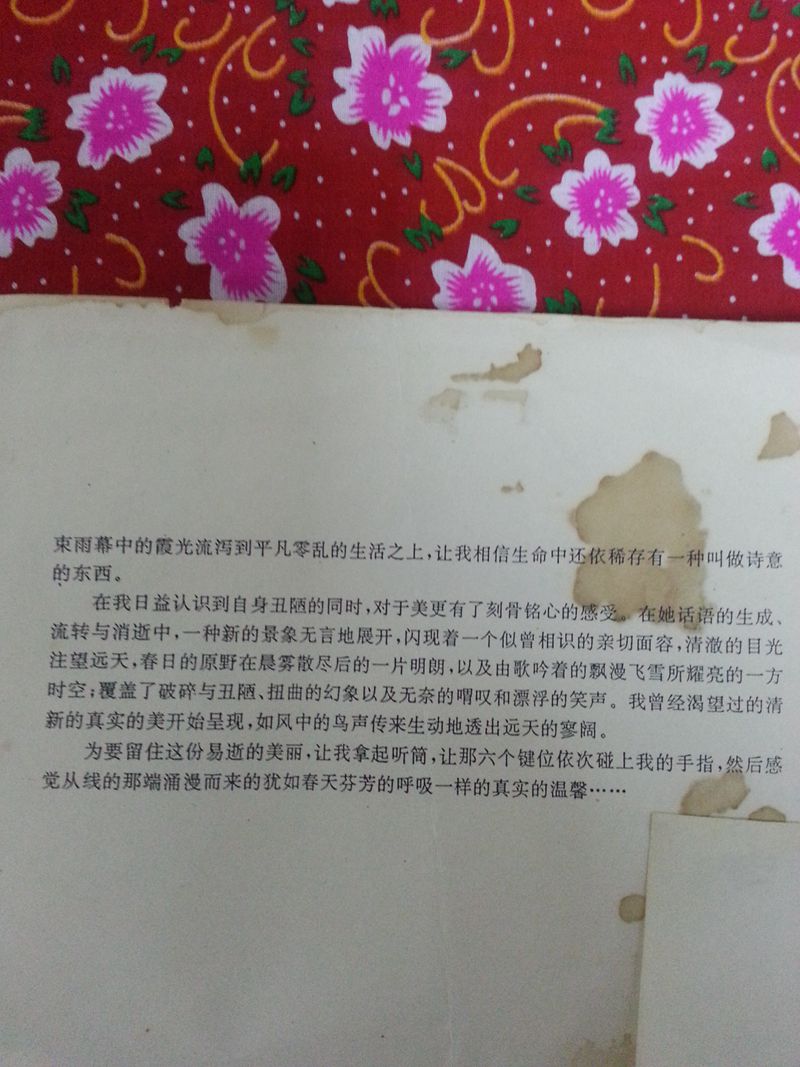 束雨幕中的霞光流泻到平凡零乱的生活之上，让我相信生命中还依稀存有一种叫做诗意
的东西。
在我日益认识到自身丑陋的同时，对于美更有了刻骨铭心的感受。在她话语的生成、
流转与消逝中，一种新的景象无言地展开，闪现着一个似曾相识的亲切面容，清澈的目光
注望远天，春日的原野在晨雾散尽后的一片明朗，以及由歌吟着的飘漫飞雪所耀亮的一方
时空；覆盖了破碎与丑陋、扭曲的幻象以及无奈的喟叹和漂浮的笑声。我曾经渴望过的清
新的真实的美开始呈现，如风中的鸟声传来生动地透出远天的寥阔。
为要留住这份易逝的美丽，让我拿起听筒，让那六个键位依次碰上我的手指，然后感
觉从线的那端涌漫而来的犹如春天芬芳的呼吸一样的真实的温馨……